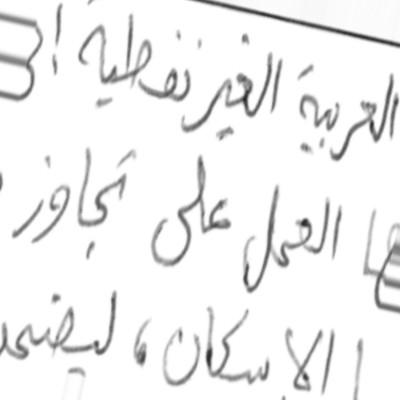 العربية الغير نفطية !
العمل على تجاوز
الاسكان ، ليضمد